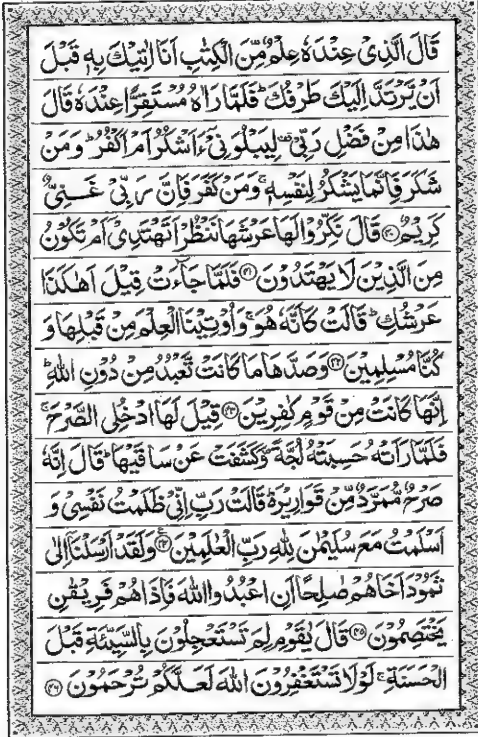 قَالَ الَّذِيْ عِنْدَهٗ عِلْمٌ مِّنَ الْكِتٰبِ اَنَا اٰتِيْكَ بِهٖ قَبْلَ
اَنْ يَّرْتَدَّ اِلَيْكَ طَرْفُكَ ؕ فَلَمَّا رَاٰهُ مُسْتَقِرًّا عِنْدَهٗ قَالَ
هٰذَا مِنْ فَضْلِ رَبِّيْ ۖ لِيَبْلُوَنِيْ ءَاَشْكُرُ اَمْ اَكْفُرُ ؕ وَمَنْ
شَكَرَ فَاِنَّمَا يَشْكُرُ لِنَفْسِهٖ ۚ وَمَنْ كَفَرَ فَاِنَّ رَبِّيْ غَنِيٌّ
كَرِيْمٌ ﴿۴۰﴾ قَالَ نَكِّرُوْا لَهَا عَرْشَهَا نَنْظُرْ اَتَهْتَدِيْ اَمْ تَكُوْنُ
مِنَ الَّذِيْنَ لَا يَهْتَدُوْنَ ﴿۴۱﴾ فَلَمَّا جَآءَتْ قِيْلَ اَهٰكَذَا
عَرْشُكِ ؕ قَالَتْ كَاَنَّهٗ هُوَ ۚ وَاُوْتِيْنَا الْعِلْمَ مِنْ قَبْلِهَا وَ
كُنَّا مُسْلِمِيْنَ ﴿۴۲﴾ وَصَدَّهَا مَا كَانَتْ تَّعْبُدُ مِنْ دُوْنِ اللّٰهِ ؕ
اِنَّهَا كَانَتْ مِنْ قَوْمٍ كٰفِرِيْنَ ﴿۴۳﴾ قِيْلَ لَهَا ادْخُلِي الصَّرْحَ ۚ
فَلَمَّا رَاَتْهُ حَسِبَتْهُ لُجَّةً وَّكَشَفَتْ عَنْ سَاقَيْهَا ؕ قَالَ اِنَّهٗ
صَرْحٌ مُّمَرَّدٌ مِّنْ قَوَارِيْرَ ؕ قَالَتْ رَبِّ اِنِّيْ ظَلَمْتُ نَفْسِيْ وَ
اَسْلَمْتُ مَعَ سُلَيْمٰنَ لِلّٰهِ رَبِّ الْعٰلَمِيْنَ ﴿۴۴﴾ وَلَقَدْ اَرْسَلْنَا اِلٰى
ثَمُوْدَ اَخَاهُمْ صٰلِحًا اَنِ اعْبُدُوا اللّٰهَ فَاِذَا هُمْ فَرِيْقٰنِ
يَخْتَصِمُوْنَ ﴿۴۵﴾ قَالَ يٰقَوْمِ لِمَ تَسْتَعْجِلُوْنَ بِالسَّيِّئَةِ قَبْلَ
الْحَسَنَةِ ۚ لَوْلَا تَسْتَغْفِرُوْنَ اللّٰهَ لَعَلَّكُمْ تُرْحَمُوْنَ ﴿۴۶﴾